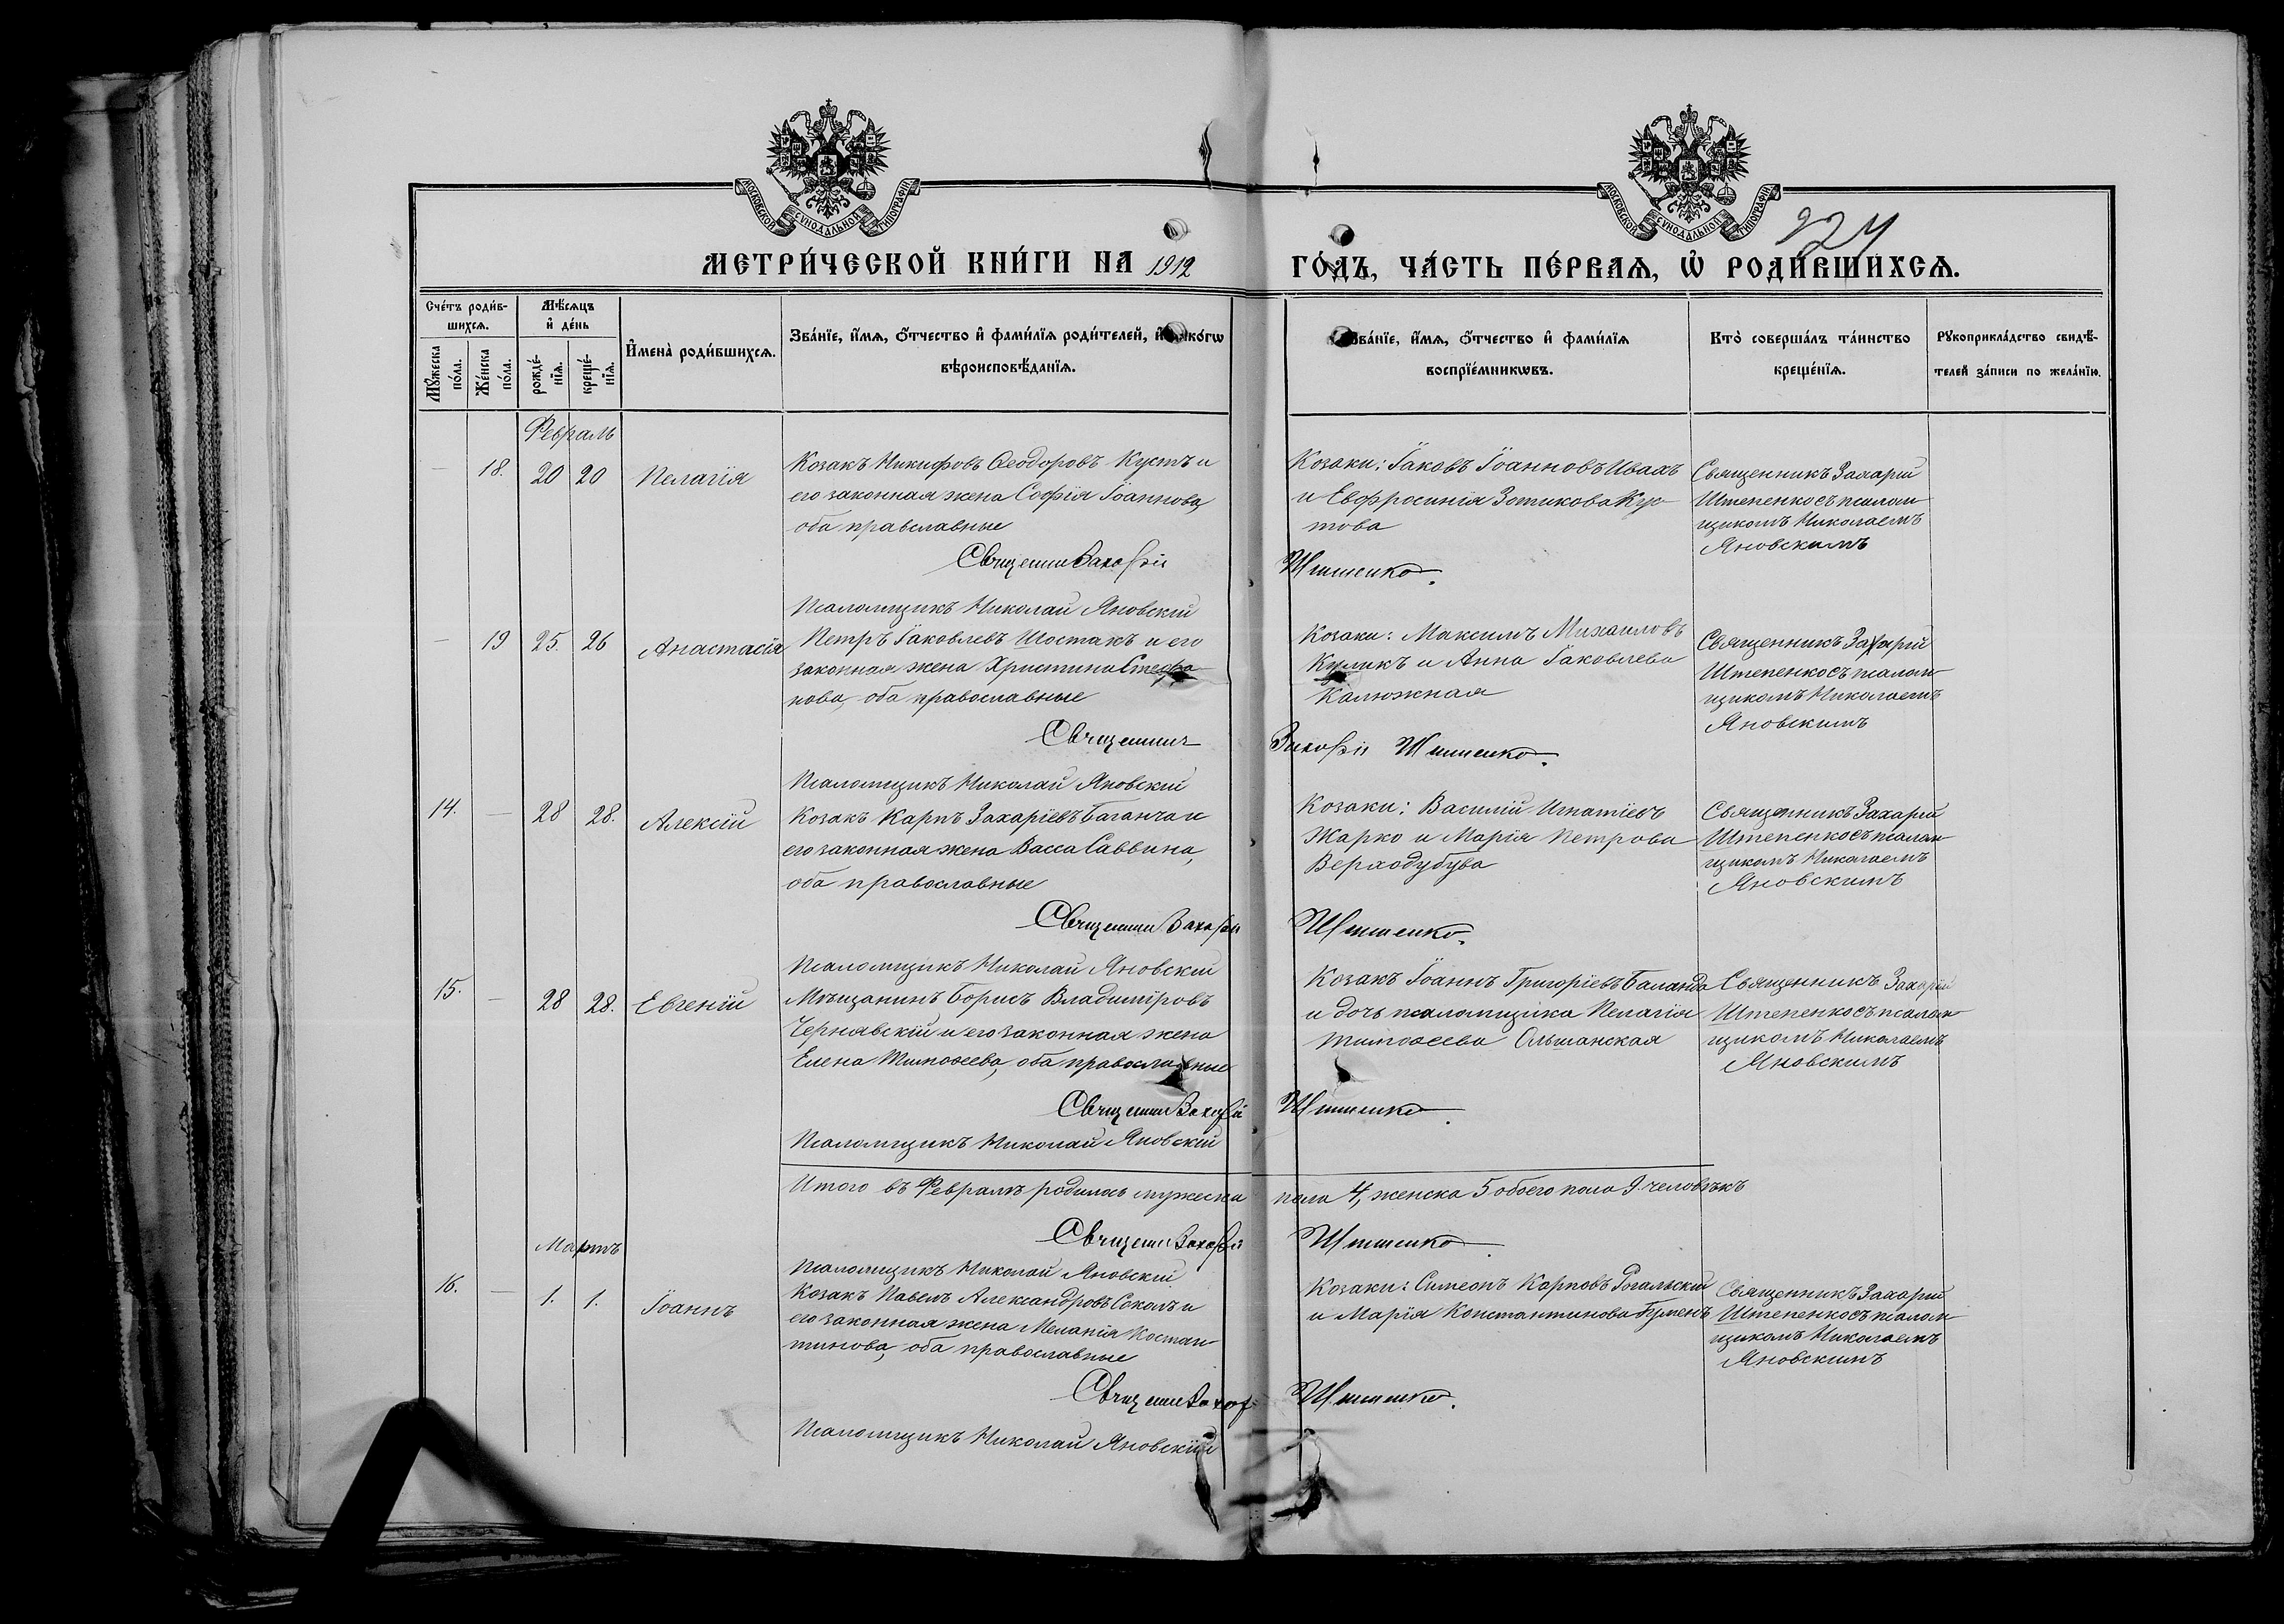 МОСКОВСКОЙ СѴНОДАЛЬНОЙ ТИПОГРАФІИ
МОСКОВСКОЙ СѴНОДАЛЬНОЙ ТИПОГРАФІИ
224
МЕТРИ́ЧЕСКОЙ КНИ́ГИ НА 1912
ГО́ДЪ, ЧА́СТЬ ПЕ́РВАѦ, Ѽ РОДИ́ВШИХСѦ.
Сче́тъ роди́в-
шихсѧ.
Мѣ́сѧцъ
и҆ де́нь
Мꙋ́жеска по́ла.
Же́нска по́ла.
рожде́-нїѧ.
креще́-нїѧ.
И҆мена̀ роди́вшихсѧ.
Зва́нїе, и҆́мѧ, ѻ҆́тчество и҆ фами́лїѧ роди́телей, и҆ како́гѡ
вѣроисповѣ́данїѧ.
Зва́нїе, и҆́мѧ, ѻ҆́тчество и҆ фами́лїѧ
воспрїе́мникѡвъ.
Кто̀ соверша́лъ та́инство
креще́нїѧ.
Рꙋкоприкла́дство свидѣ́-
телей за́писи по жела́нїю.
Февраль
— 18. 20 20 Пелагія
Козакъ Никифовъ Ѳеодоровъ Кустъ и
его законная жена Софія Іоаннова,
оба правславные
Козаки: Іаковъ Іоанновъ Ивахъ
и Евфросинія Зотикова Кус-
това
Священникъ Захарій
Штепенко съ псалом
щикомъ Николаемъ
Яновскимъ
Священник Захарій Штепенко.
Псаломщикъ Николай Яновскій
— 19 25. 26 Анастасія
Петръ Іаковлевъ Шостакъ и его
законная жена Христина Стефа
нова, оба православные
Козаки: Максимъ Михаиловъ
Куликъ и Анна Іаковлева
Калюжная
Священникъ Захарій
Штепенко съ псалом
щикомъ Николаемъ
Яновскимъ
Священник Захарій Штепенко.
Псаломщикъ Николай Яновскій
14. — 28 28. Алексій
Козакъ Карпъ Захаріевъ Баганча и
его законная жена Васса Саввина,
оба православные
Козаки: Василій Игнатіевъ
Жарко и Марія Петрова
Верходубува
Священникъ Захарій
Штепенко съ псалом
щикомъ Николаемъ
Яновскимъ
Священник Захарій Штепенко.
Псаломщикъ Николай Яновскій
15. — 28 28. Евгеній
Мѣщанинъ Борисъ Владиміровъ
Чернявскій и его законная жена
Елена Тимоѳеева, оба православные
Козакъ Іоаннъ Григоріевъ Баланда
и дочь псаломщика Пелагія
Тимоѳеева Ольшанская
Священникъ Захарій
Штепенко съ псалом
щикомъ Николаемъ
Яновскимъ
Священник Захарій Штепенко.
Псаломщикъ Николай Яновскій
Итого въ Февралѣ родилось мужеска пола 4, женска 5 обоего пола 9 человѣкъ
Священник Захарій Штепенко.
Псаломщикъ Николай Яновскій
Мартъ
16. — 1. 1. Іоаннъ
Козакъ Павелъ Александровъ Соколъ и
его законная жена Меланія Костан
тинова, оба православные
Козаки: Симеонъ Карповъ Рогальскій
и Марія Константинова Бумекъ
Священникъ Захарій
Штепенко съ псалом
щикомъ Николаемъ
Яновскимъ
Священник Захарій Штепенко.
Псаломщикъ Николай Яновскій